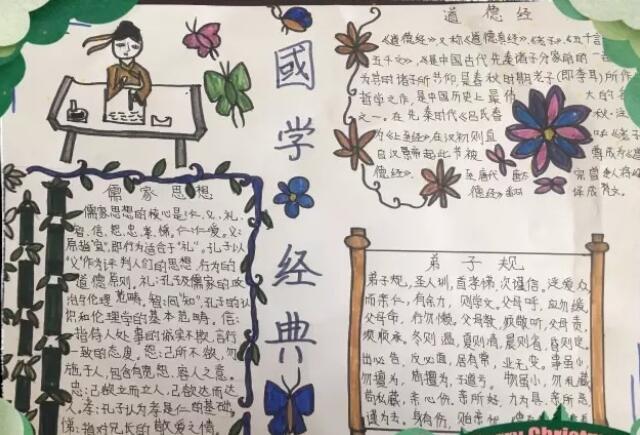 國学经典
道德经
《道德经》,又称《道德真经》、《老子》、《五千言》
五千文》,是中国古代先秦诸子分家前的一
为其时诸子所共仰,是春秋时期老子(即李耳)所作
哲学之作,是中国历史上最伟大的名
之一。在先秦时代《吕氏春秋·
为《上至经》在汉初则直《老子》
自汉景帝起此书被尊成为
德经》。至唐代 唐太宗曾
德经》翻译成梵文。
儒家思想
儒家思想的核心是:仁、义、礼、
智、信、恕、忠、孝、悌。仁:仁爱。义:
原指"宜",即行为适合于"礼"。孔子以
"义"作为评判人们的思想、行为的
道德原则。礼:孔及儒家的政
治与伦理范畴。智:同"知",孔子的认
识和伦理学的基本范畴。信:
指待人处事的诚实不欺,言行
一致的态度。恕:己所不欲,勿
施于人,包含有宽恕、容人之意。
忠:己欲立而立人,己欲达而达
人。孝:孔子认为孝是仁的基础。
悌:指对兄长的敬爱之情。
弟子规
弟子规,圣人训,首孝悌,次谨信,泛爱众
而亲仁,有余力,则学文。父母呼,应勿缓
父母命,行勿懒。父母教,须敬听,父母责,
须顺承。冬则温,夏则凊,晨则省,昏则定。
出必告,反必面,居有常,业无变。事虽小,
勿擅为,苟擅为,子道亏。物虽小,勿私藏
苟私藏,亲心伤。亲所好,力为具,亲所恶
谨为去。身有伤,贻亲
Christ